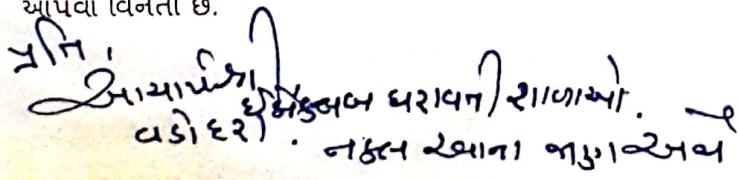 આપવા વિનંતી છે.
પ્રતિ,
આચાર્યશ્રી
ઈકો ક્લબ ધરાવતી શાળાઓ.
વડોદરા.
નકલ રવાના જાણ અર્થે